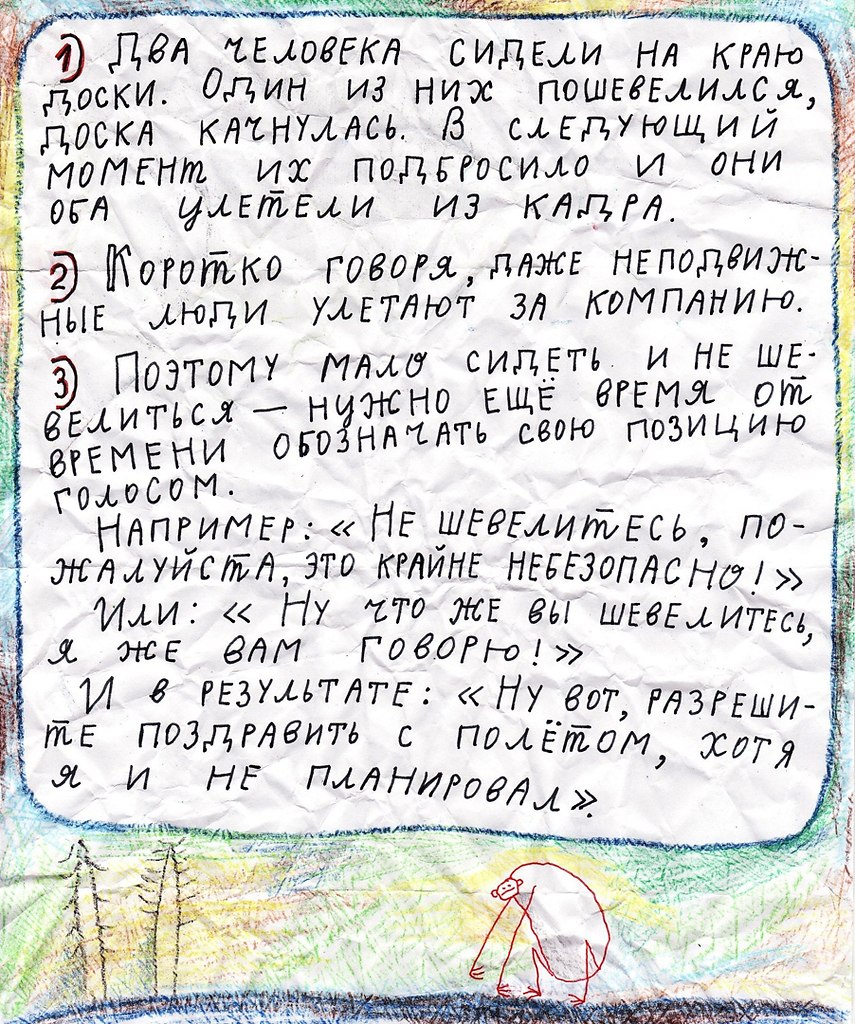 1) Два человека сидели на краю
доски. Один из них пошевелился,
доска качнулась. В следующий
момент их подбросило и они
оба улетели из кадра.
2) Коротко говоря, даже неподвиж-
ные люди улетают за компанию.
3) Поэтому мало сидеть и не ше-
велиться — нужно ещё время от
времени обозначать свою позицию
голосом.
Например: «Не шевелитесь, по-
жалуйста, это крайне небезопасно!»
Или: «Ну что же вы шевелитесь,
я же вам говорю!»
И в результате: «Ну вот, разреши-
те поздравить с полётом, хотя
я и не планировал».